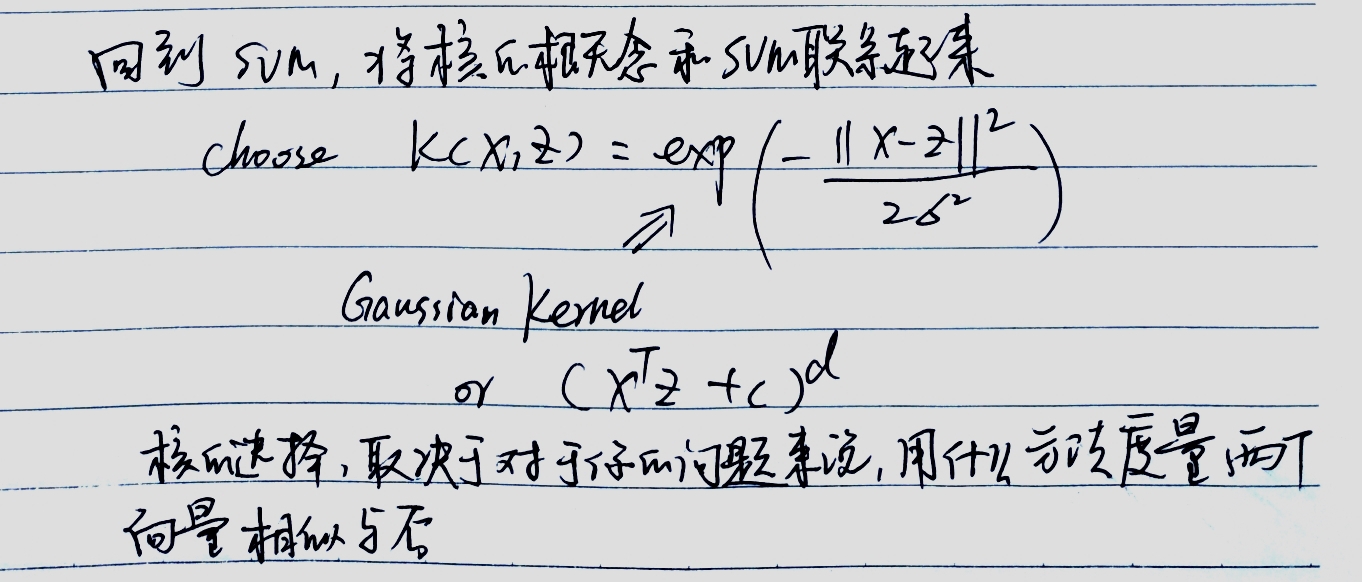 回到 SVM, 将核的概念和SVM联系起来
choose K(X,Z) = exp(-||X-Z||²/2σ²)
⇗
Gaussian Kernel
or (XᵀZ + c)ᵈ
核的选择,取决于对于你的问题来说,用什么方法度量两个
向量相似与否